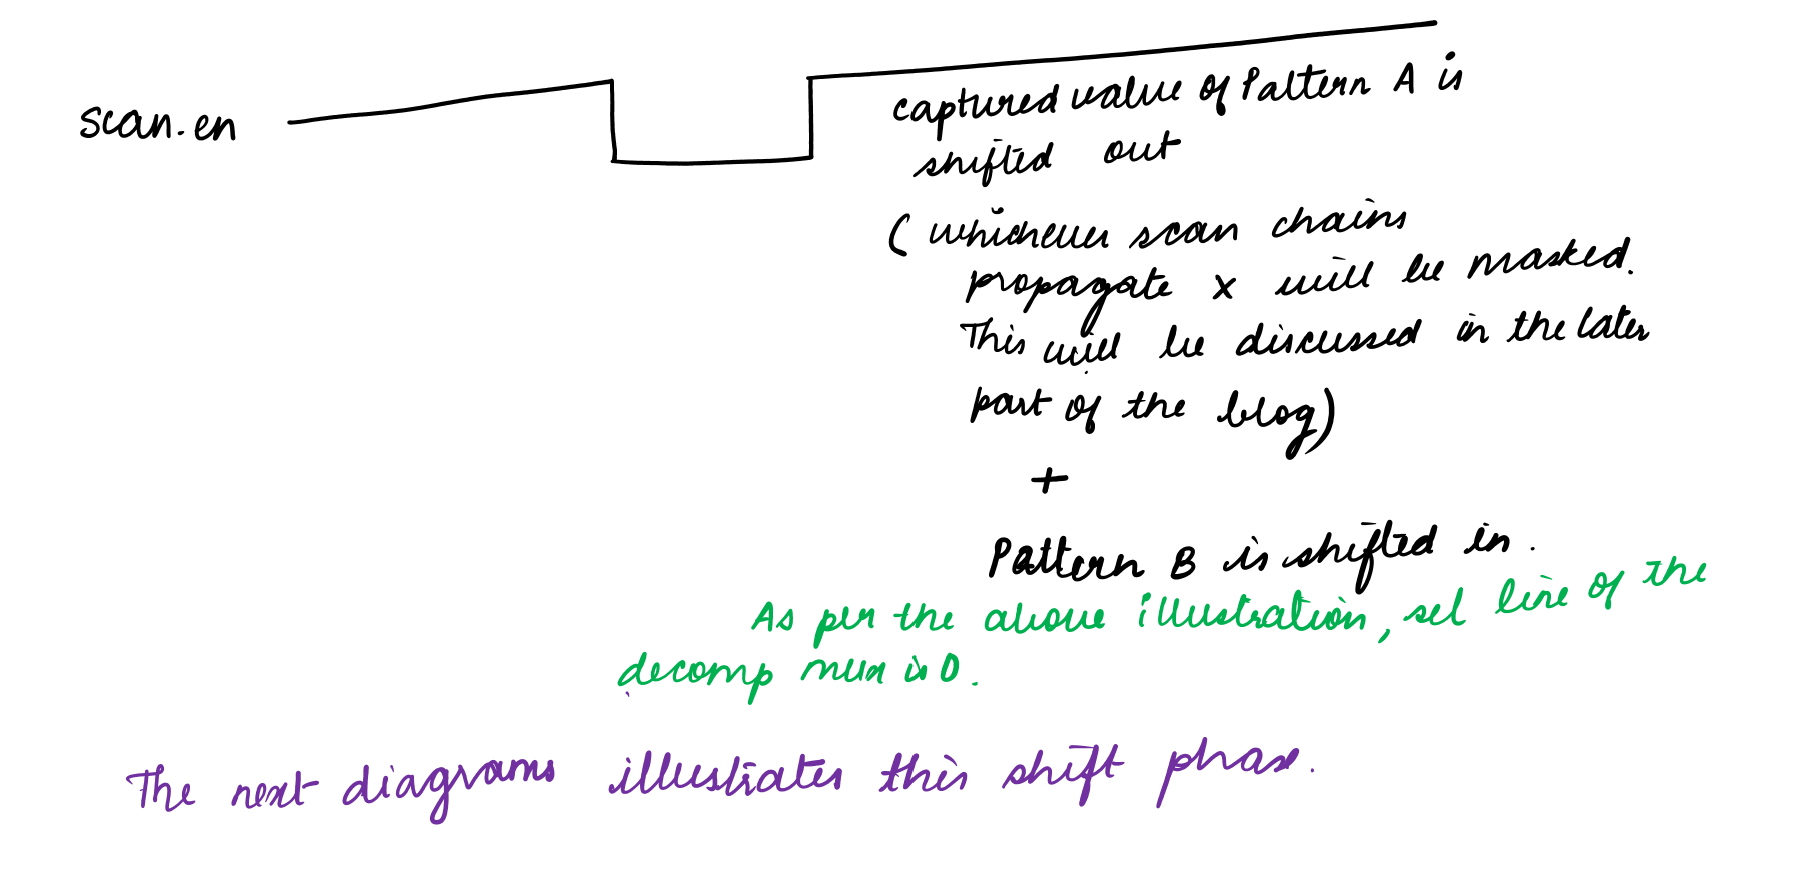 scan.en
captured value of Pattern A is
shifted out
(whichever scan chains
propagate x will be masked.
This will be discussed in the later
part of the blog)
+
Pattern B is shifted in.
As per the above illustration, sel line of the
decomp mux is 0.
The next diagrams illustrates this shift phase.